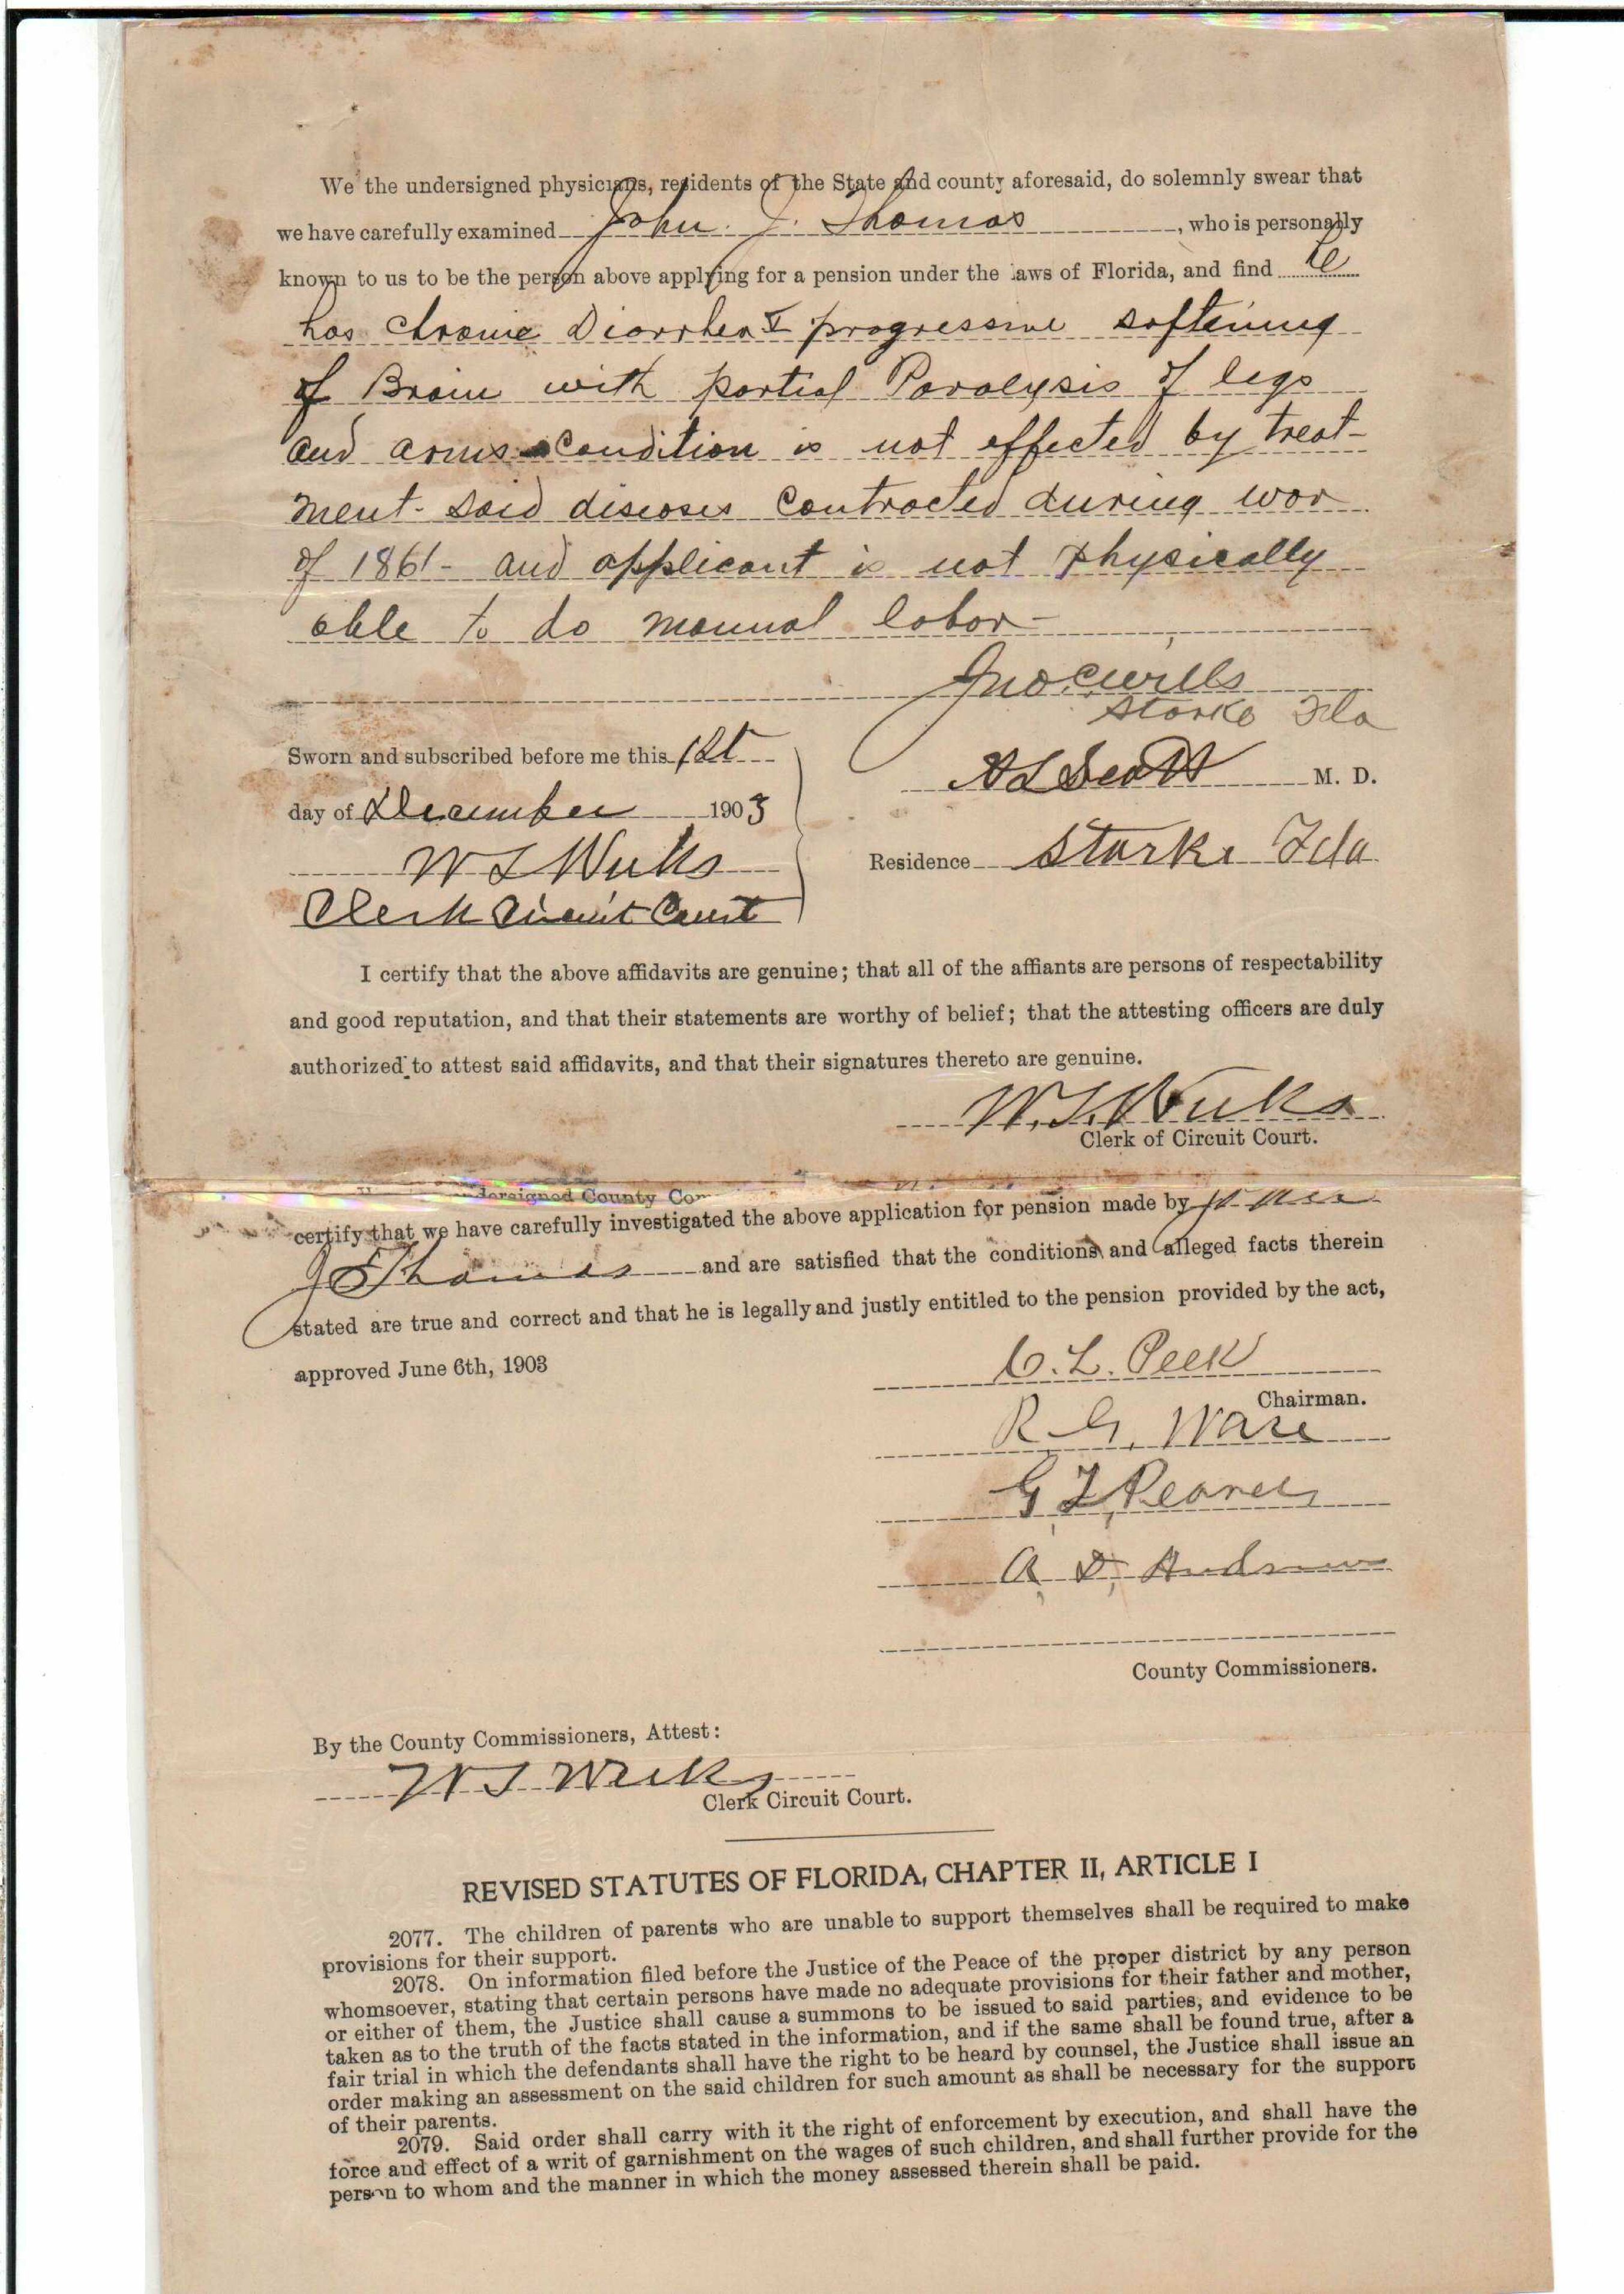 We the undersigned physicians, residents of the State and county aforesaid, do solemnly swear that
we have carefully examined John J. Thomas, who is personally
known to us to be the person above applying for a pension under the laws of Florida, and find he
has chronic Diorrhea & progressive softening
of Brain with partial Paralysis of legs
and arms condition is not effected by treat-
ment - said diseases contracted during war
of 1861 - and applicant is not physically
able to do manual labor -
Jno. C. Wills
Starke Fla
Sworn and subscribed before me this 1st
A L Scott M. D.
day of December 1903
W L Weeks
Residence Starke Fla
Clerk Circuit Court
I certify that the above affidavits are genuine; that all of the affiants are persons of respectability
and good reputation, and that their statements are worthy of belief; that the attesting officers are duly
authorized to attest said affidavits, and that their signatures thereto are genuine.
W. L. Weeks
Clerk of Circuit Court.
undersigned County
certify that we have carefully investigated the above application for pension made by John
J Thomas and are satisfied that the conditions and alleged facts therein
stated are true and correct and that he is legally and justly entitled to the pension provided by the act,
approved June 6th, 1903
C. L. Peek
Chairman.
R. G. Ware
G L Pearce
A. D. Andrews
County Commissioners.
By the County Commissioners, Attest:
W L Weeks
Clerk Circuit Court.
REVISED STATUTES OF FLORIDA, CHAPTER II, ARTICLE I
2077. The children of parents who are unable to support themselves shall be required to make
provisions for their support.
2078. On information filed before the Justice of the Peace of the proper district by any person
whomsoever, stating that certain persons have made no adequate provisions for their father and mother,
or either of them, the Justice shall cause a summons to be issued to said parties, and evidence to be
taken as to the truth of the facts stated in the information, and if the same shall be found true, after a
fair trial in which the defendants shall have the right to be heard by counsel, the Justice shall issue an
order making an assessment on the said children for such amount as shall be necessary for the support
of their parents.
2079. Said order shall carry with it the right of enforcement by execution, and shall have the
force and effect of a writ of garnishment on the wages of such children, and shall further provide for the
person to whom and the manner in which the money assessed therein shall be paid.